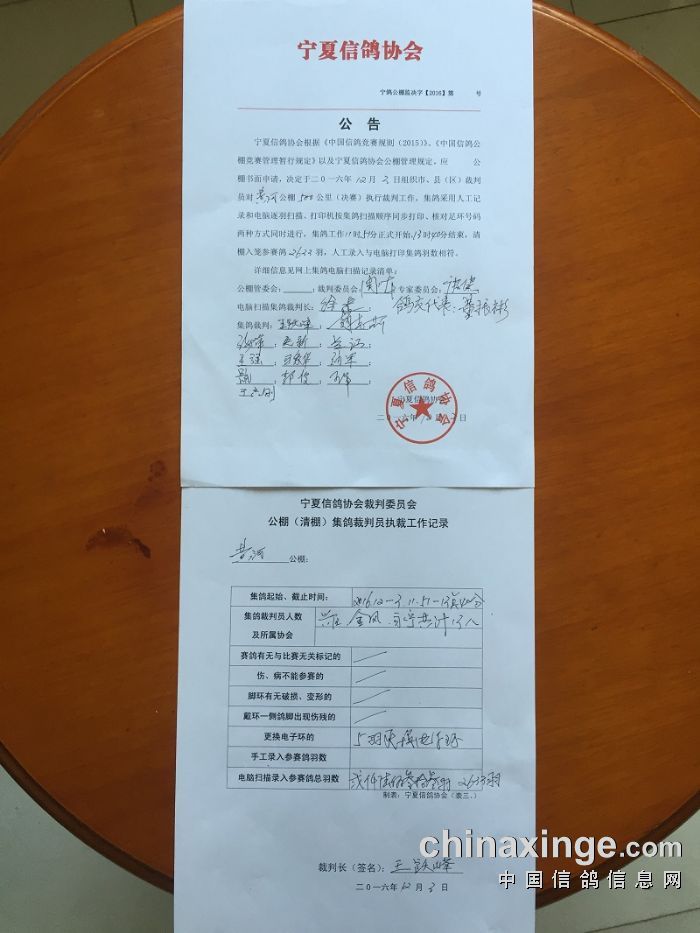 宁夏信鸽协会
宁鸽公棚监决字【2016】第 号
公 告
宁夏信鸽协会根据《中国信鸽竞赛规则（2015）》、《中国信鸽公
棚竞赛管理暂行规定》以及宁夏信鸽协会公棚管理规定，应 公
棚书面申请，决定于二〇一六年12月3日组织市、县（区）裁判
员对黄河公棚500公里（决赛）执行裁判工作，集鸽采用人工记
录和电脑逐羽扫描、打印机按集鸽扫描顺序同步打印、核对足环号码
两种方式同时进行，集鸽工作11时51分正式开始，13时40分结束，清
棚入笼参赛鸽2633羽，人工录入与电脑打印集鸽羽数相符。
详细信息见网上集鸽电脑扫描记录清单：
公棚管委会： ；裁判委员会 专家委员会：
电脑扫描集鸽裁判长： 鸽友代表：
集鸽裁判：王铁峰；
宁夏信鸽协会
二〇一六年12月3日
宁夏信鸽协会裁判委员会
公棚（清棚）集鸽裁判员执裁工作记录
黄河 公棚：
集鸽起始、截止时间： 2016.12-3.11.51-13时40分
集鸽裁判员人数
及所属协会
赛鸽有无与比赛无关标记的
伤、病不能参赛的
脚环有无破损、变形的
戴环一侧鸽脚出现伤残的
更换电子环的 5羽更换电子环
手工录入参赛鸽羽数
电脑扫描录入参赛鸽总羽数 贰仟陆佰叁拾叁羽 2633羽
制表：宁夏信鸽协会（表三.）
裁判长（签名）：王铁峰
二〇一六年12月3日
chinaxinge.com
中国信鸽信息网